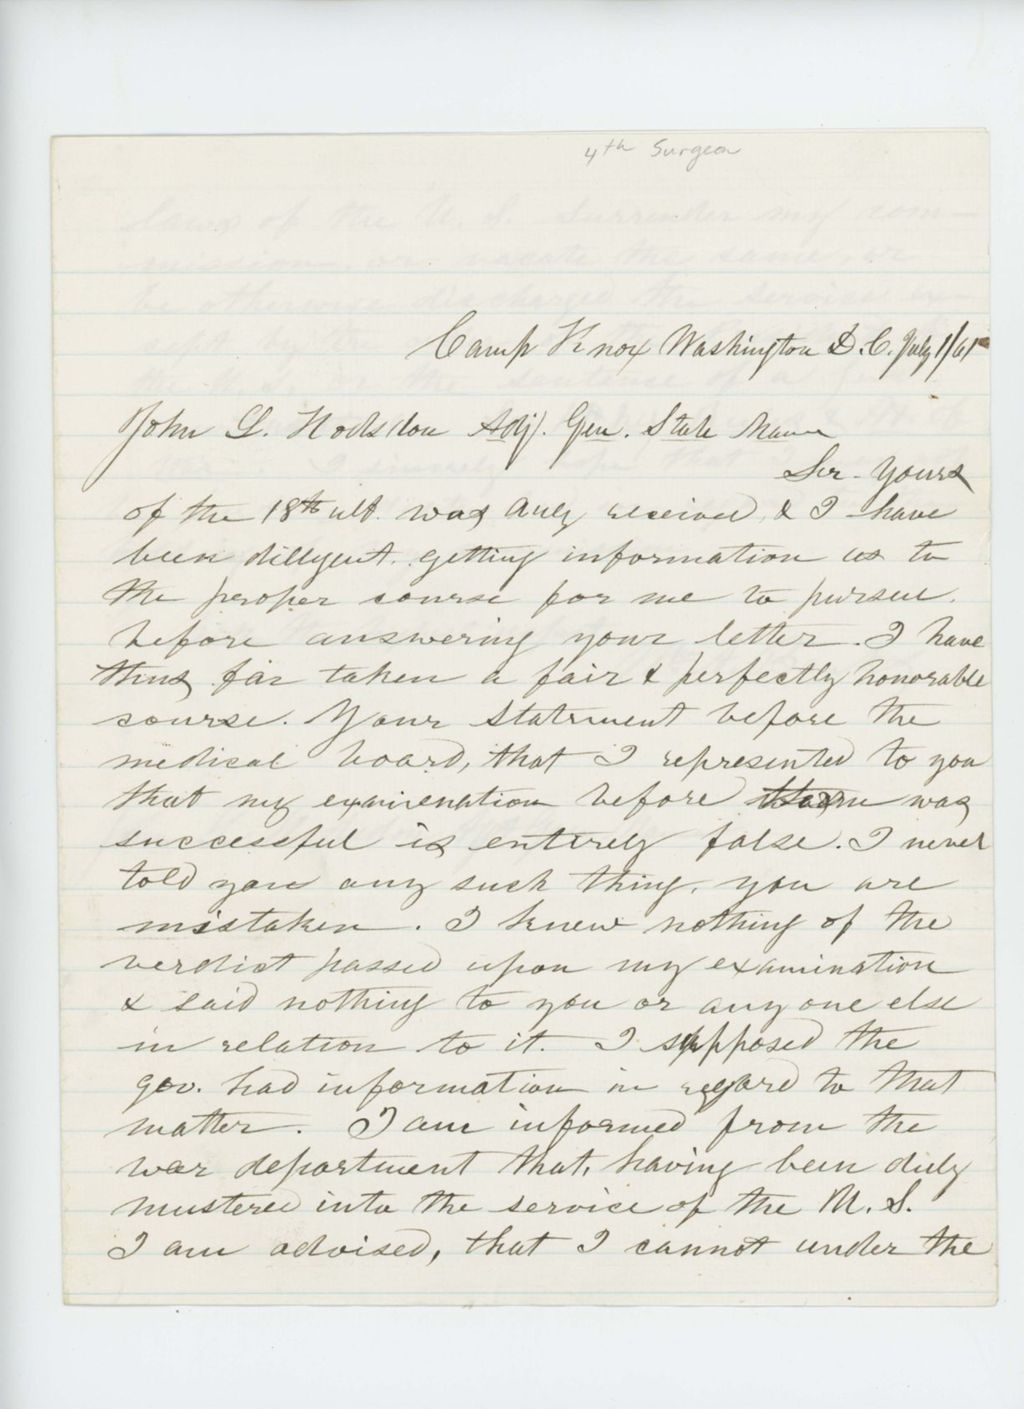 4th Surgeon
Camp Knox Washington D.C. July 1/61
John L. Hodsdon Adj. Gen. State Maine
Sir. Yours
of the 18th ult. was duly received, & I have
been dillgent. getting information as to
the proper course for me to pursue.
before answering your letter. I have
thus far taken a fair & perfectly honorable
course. Your statement before the
medical board, that I represented to you
that my examination before them was
successful is entirely false. I never
told you any such thing. you are
mistaken. I knew nothing of the
verdict passed upon my examination
& said nothing to you or any one else
in relation to it. I supposed the
gov. had information in regard to that
matter. I am informed from the
war department that, having been duly
mustered into the service of the U.S.
I am advised, that I cannot under the